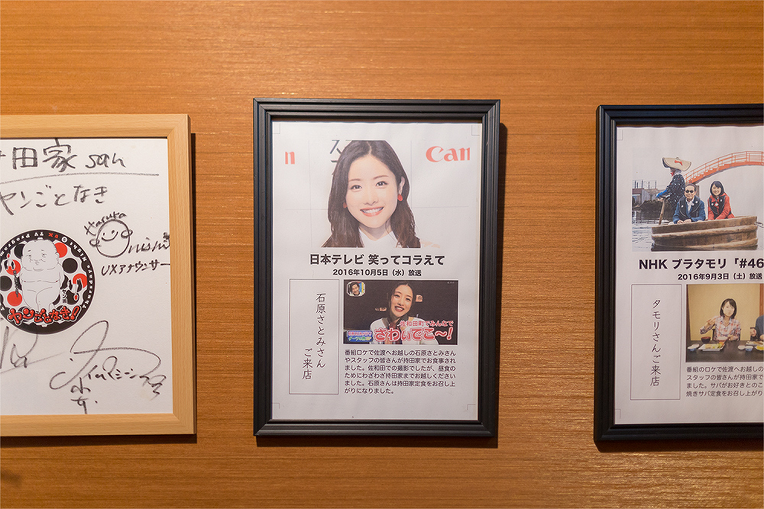 田家 san
ヤンごとなき
UXアナウンサー
Can
日本テレビ 笑ってコラえて
2016年10月5日（水）放送
石原さとみさん
ご来店
さわいでこ〜!
番組ロケで佐渡へお越しの石原さとみさん
やスタッフの皆さんが持田家でお食事され
ました。佐和田での撮影でしたが、昼食の
ためにわざわざ持田家までお越しください
ました。石原さんは持田家定食をお召し上
がりになりました。
NHK ブラタモリ「#46
2016年9月3日（土）放送
タモリさんご来店
番組のロケで佐渡へお越しの
スタッフの皆さんが持田家で
ました。サバがお好きとのこ
焼きサバ定食をお召し上がり